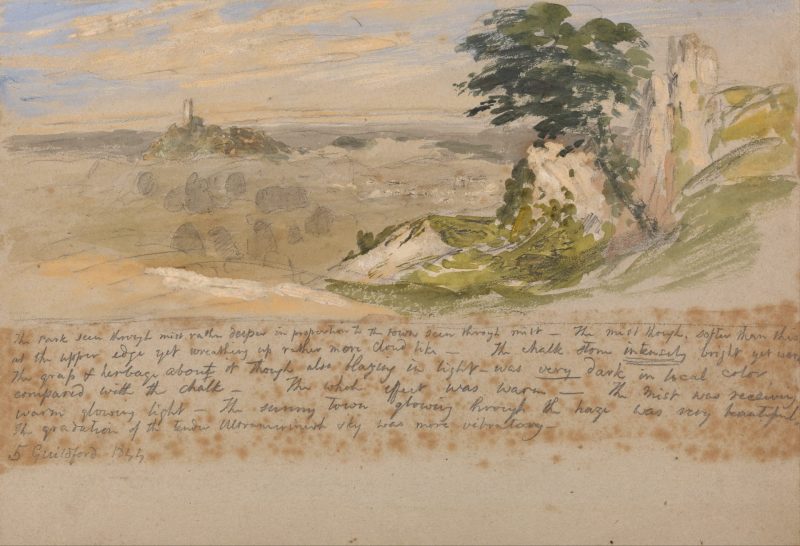 The Park seen through mist rather deeper in proportion to the town seen through mist – The mist though, softer than this
at the upper edge yet wreathing up rather more cloud like – The chalk stone intensely bright yet warm
The grass & herbage about it though also blazing in light – was very dark in local color
compared with the chalk – The whole effect was warm – The mist was receiving
warm glowing light – The sunny town glowing through the haze was very beautiful,
The gradation of the tender Ultramarinish sky was more vibratory –
Guildford